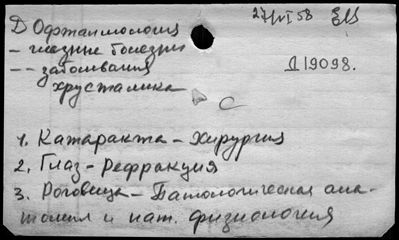 Д Офтальмология 27/VI 58
- глазные болезни
-- заболевания Д 19098.
хрусталика
С
1. Катаракта - Хирургия
2. Глаз - Рефракция
3. Роговица - Патологическая ана-
томия и пат. физиология